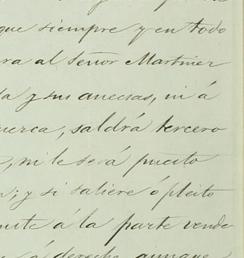 que siempre y en todo
ra al Señor Martinier
da y sus anecsas, ni á
uerca, saldrá tercero
, ni le será puesto
; y si saliere ó pleito
á la parte vende
á derecho, aunque